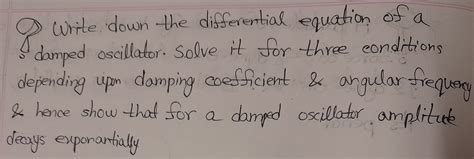 Q Write down the differential equation of a
damped oscillator. Solve it for three conditions
depending upn damping coefficient & angular frequency
& hence show that for a damped oscillator amplitude
decays exponantially